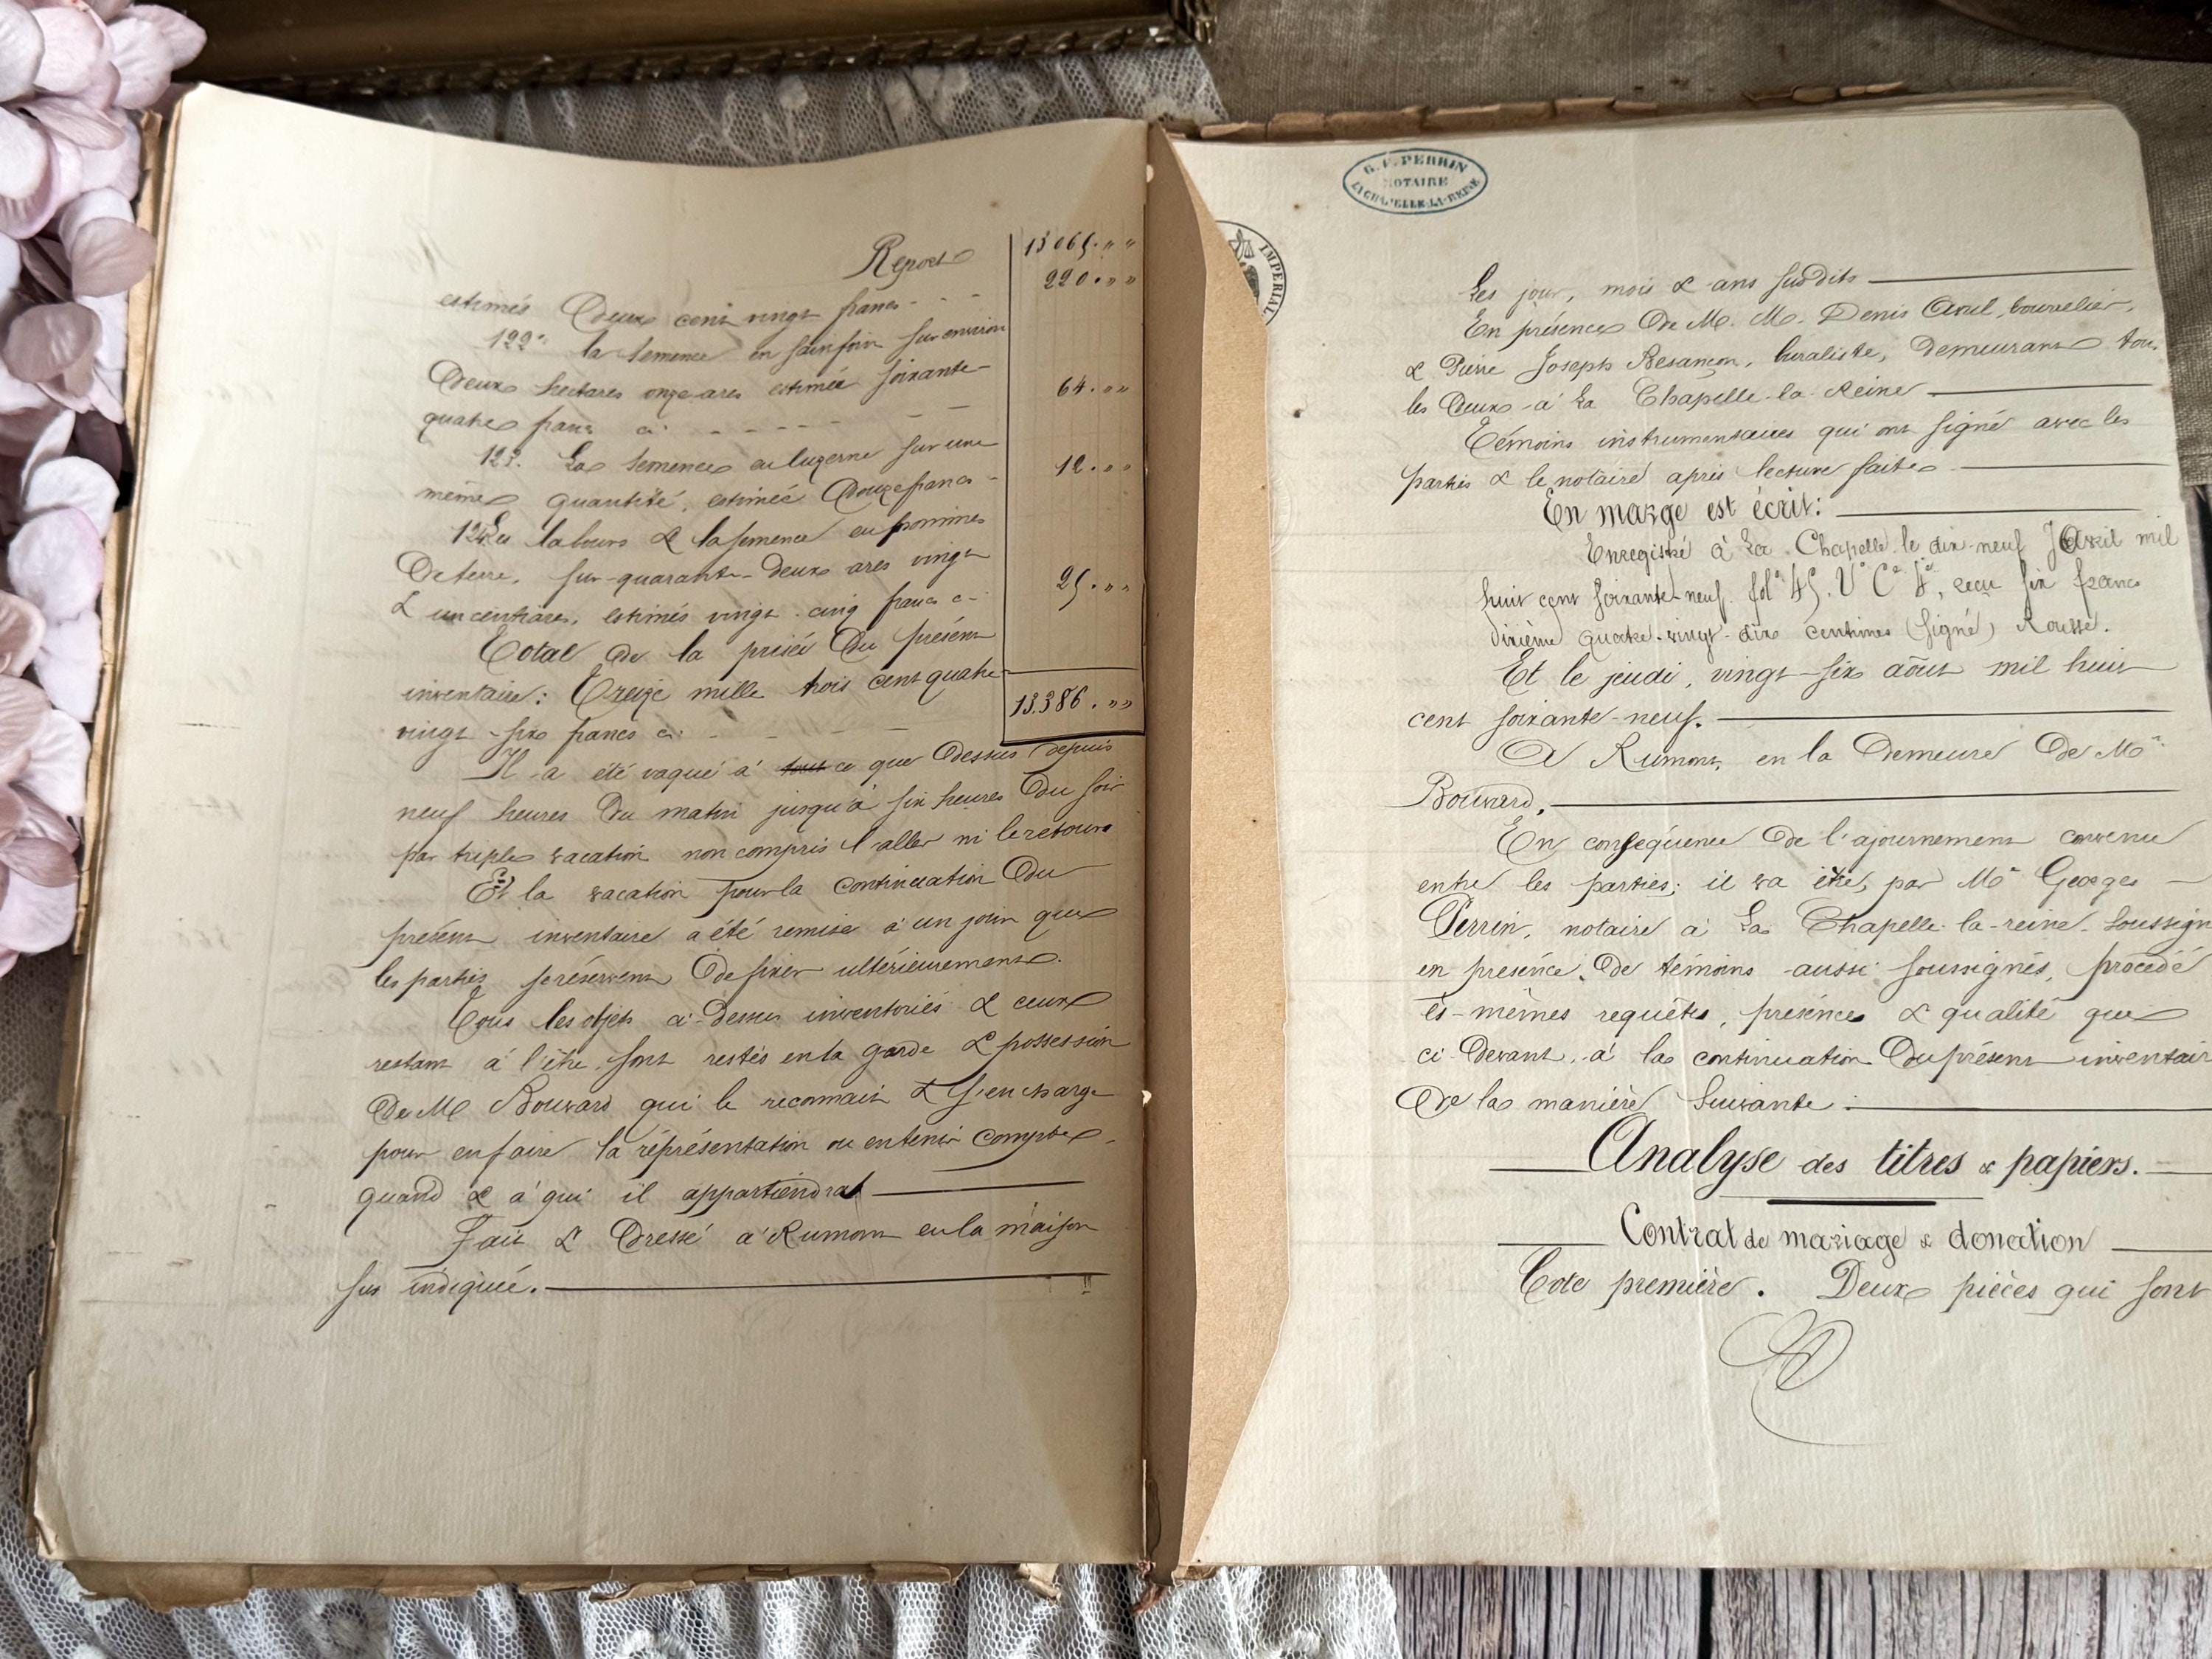 Report 13065. " "
estimés Deux cent vingt francs - - - 220. " "
122° la semence en sainfoin sur environ
Deux hectares onze ares estimée soixante-
quatre francs ci - - - - - 64. " "
123. La semence en luzerne sur une
même quantité, estimée Douze francs - 12. " "
124 Les labours & la semence en pommes
De terre, sur quarante-deux ares vingt
& un centiares, estimés vingt-cinq francs c- 25. " "
Total de la prisée Du présent
inventaire: Treize mille trois cent quatre
vingt-six francs ci - - - 13.386. " "
Il a été vaqué à tout ce que Dessus depuis
neuf heures Du matin jusqu'à six heures Du soir
par triple vacation non compris l'aller ni le retour
Et la vacation pour la continuation Du
présent inventaire a été remise à un jour que
les parties se réservent De fixer ultérieurement.
Tous les objets ci-Dessus inventoriés & ceux
restant à l'être sont restés en la garde & possession
De M Bouvard qui le reconnait & s'en charge
pour en faire la réprésentation ou en tenir compte
quand & à qui il appartiendra
Fait & Dressé à Rumont en la maison
sus indiquée.
G. PERRIN
NOTAIRE
LA CHAPELLE-LA-REINE
IMPERIAL
Les jour, mois & ans susdits
En présence De M. M. Denis Avril, bourrelier,
& Pierre Joseph Besançon, buraliste, Demeurant tou
les Deux à La Chapelle-la-Reine
Témoins instrumentaires qui ont signé avec les
parties & le notaire après lecture faite.
En marge est écrit:
Enregistré à La Chapelle le dix-neuf Avril mil
huit cent soixante-neuf. fol° 45. V° C° 4°, reçu six francs
dixième quatre-vingt-dix centimes (signé) Roussé.
Et le jeudi, vingt-six août mil huit
cent soixante-neuf.
A Rumont, en la Demeure De Mr
Bouvard.
En conséquence De l'ajournement convenu
entre les parties; il va être, par Me Georges
Perrin, notaire à La Chapelle-la-reine soussign
en présence De témoins aussi soussignés, procédé
ès-mêmes requêtes, présence & qualité que
ci-Devant, à la continuation Du présent inventair
De la manière suivante:
Analyse des titres & papiers.
Contrat de mariage & donation
Cote première. Deux pièces qui sont